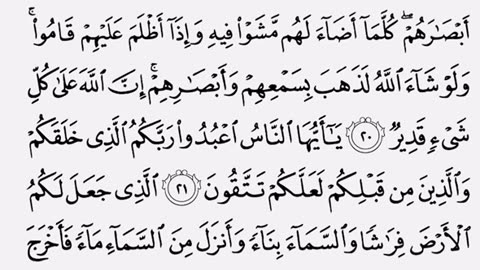 أَبْصَٰرَهُمْ ۖ كُلَّمَآ أَضَآءَ لَهُم مَّشَوْا۟ فِيهِ وَإِذَآ أَظْلَمَ عَلَيْهِمْ قَامُوا۟ ۚ
وَلَوْ شَآءَ ٱللَّهُ لَذَهَبَ بِسَمْعِهِمْ وَأَبْصَٰرِهِمْ ۚ إِنَّ ٱللَّهَ عَلَىٰ كُلِّ
شَىْءٍ قَدِيرٌ ٢٠ يَٰٓأَيُّهَا ٱلنَّاسُ ٱعْبُدُوا۟ رَبَّكُمُ ٱلَّذِى خَلَقَكُمْ
وَٱلَّذِينَ مِن قَبْلِكُمْ لَعَلَّكُمْ تَتَّقُونَ ٢١ ٱلَّذِى جَعَلَ لَكُمُ
ٱلْأَرْضَ فِرَٰشًا وَٱلسَّمَآءَ بِنَآءً وَأَنزَلَ مِنَ ٱلسَّمَآءِ مَآءً فَأَخْرَجَ